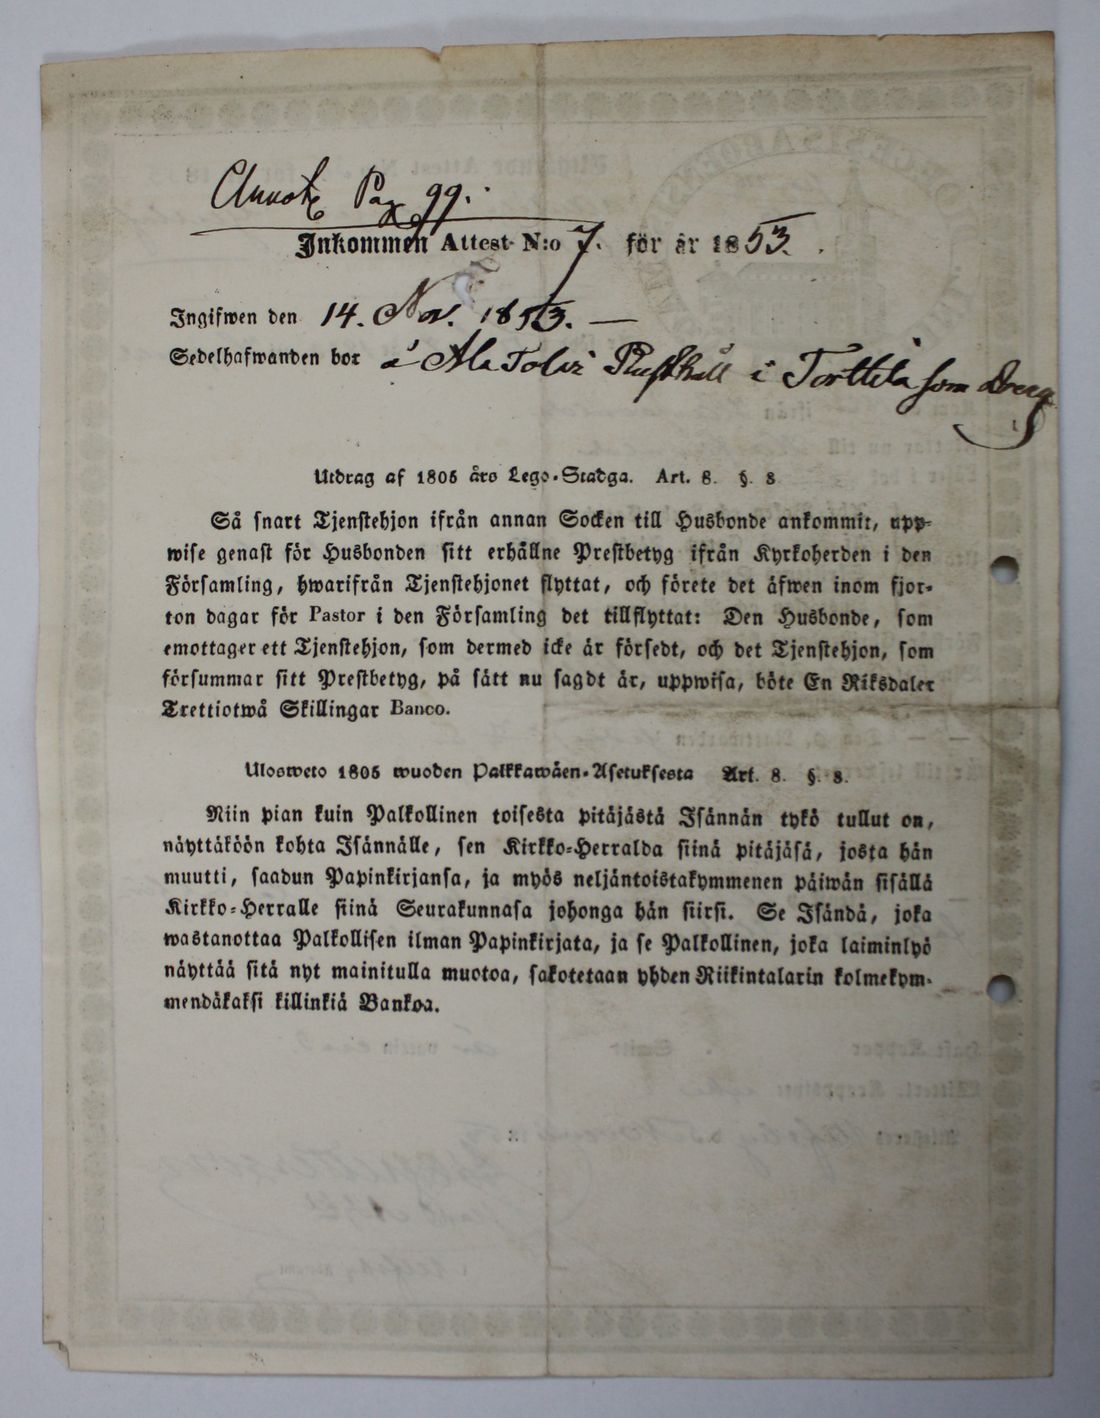 Annot. Pag 99.
Inkommen Attest N:o 7. för år 1853.
Ingifwen den 14. Nov. 1853. —
Sedelhafwanden bor å Ala Tolvi Rusthåll i Torttila som dreng
Utdrag af 1805 års Lego-Stadga. Art. 8. §. 8
Så snart Tjenstehjon ifrån annan Socken till Husbonde ankommit, upp-
wise genast för Husbonden sitt erhållne Prestbetyg ifrån Kyrkoherden i den
Församling, hwarifrån Tjenstehjonet flyttat, och förete det äfwen inom fjor-
ton dagar för Pastor i den Församling det tillflyttat: Den Husbonde, som
emottager ett Tjenstehjon, som dermed icke är försedt, och det Tjenstehjon, som
försummar sitt Prestbetyg, på sätt nu sagdt är, uppwisa, böte En Riksdaler
Trettiotwå Skillingar Banco.
Ulosweto 1805 wuoden Palkkawäen-Asetuksesta Art. 8. §. 8.
Niin pian kuin Palkollinen toisesta pitäjästä Isännän tykö tullut on,
näyttäköön kohta Isännälle, sen Kirkko-Herralda siinä pitäjäsä, josta hän
muutti, saadun Papinkirjansa, ja myös neljäntoistakymmenen päiwän sisällä
Kirkko-Herralle siinä Seurakunnasa johonga hän siirsi. Se Isändä, joka
wastanottaa Palkollisen ilman Papinkirjata, ja se Palkollinen, joka laiminlyö
näyttää sitä nyt mainitulla muotoa, sakotetaan yhden Riikintalarin kolmekym-
mendäkaksi killinkiä Bankoa.